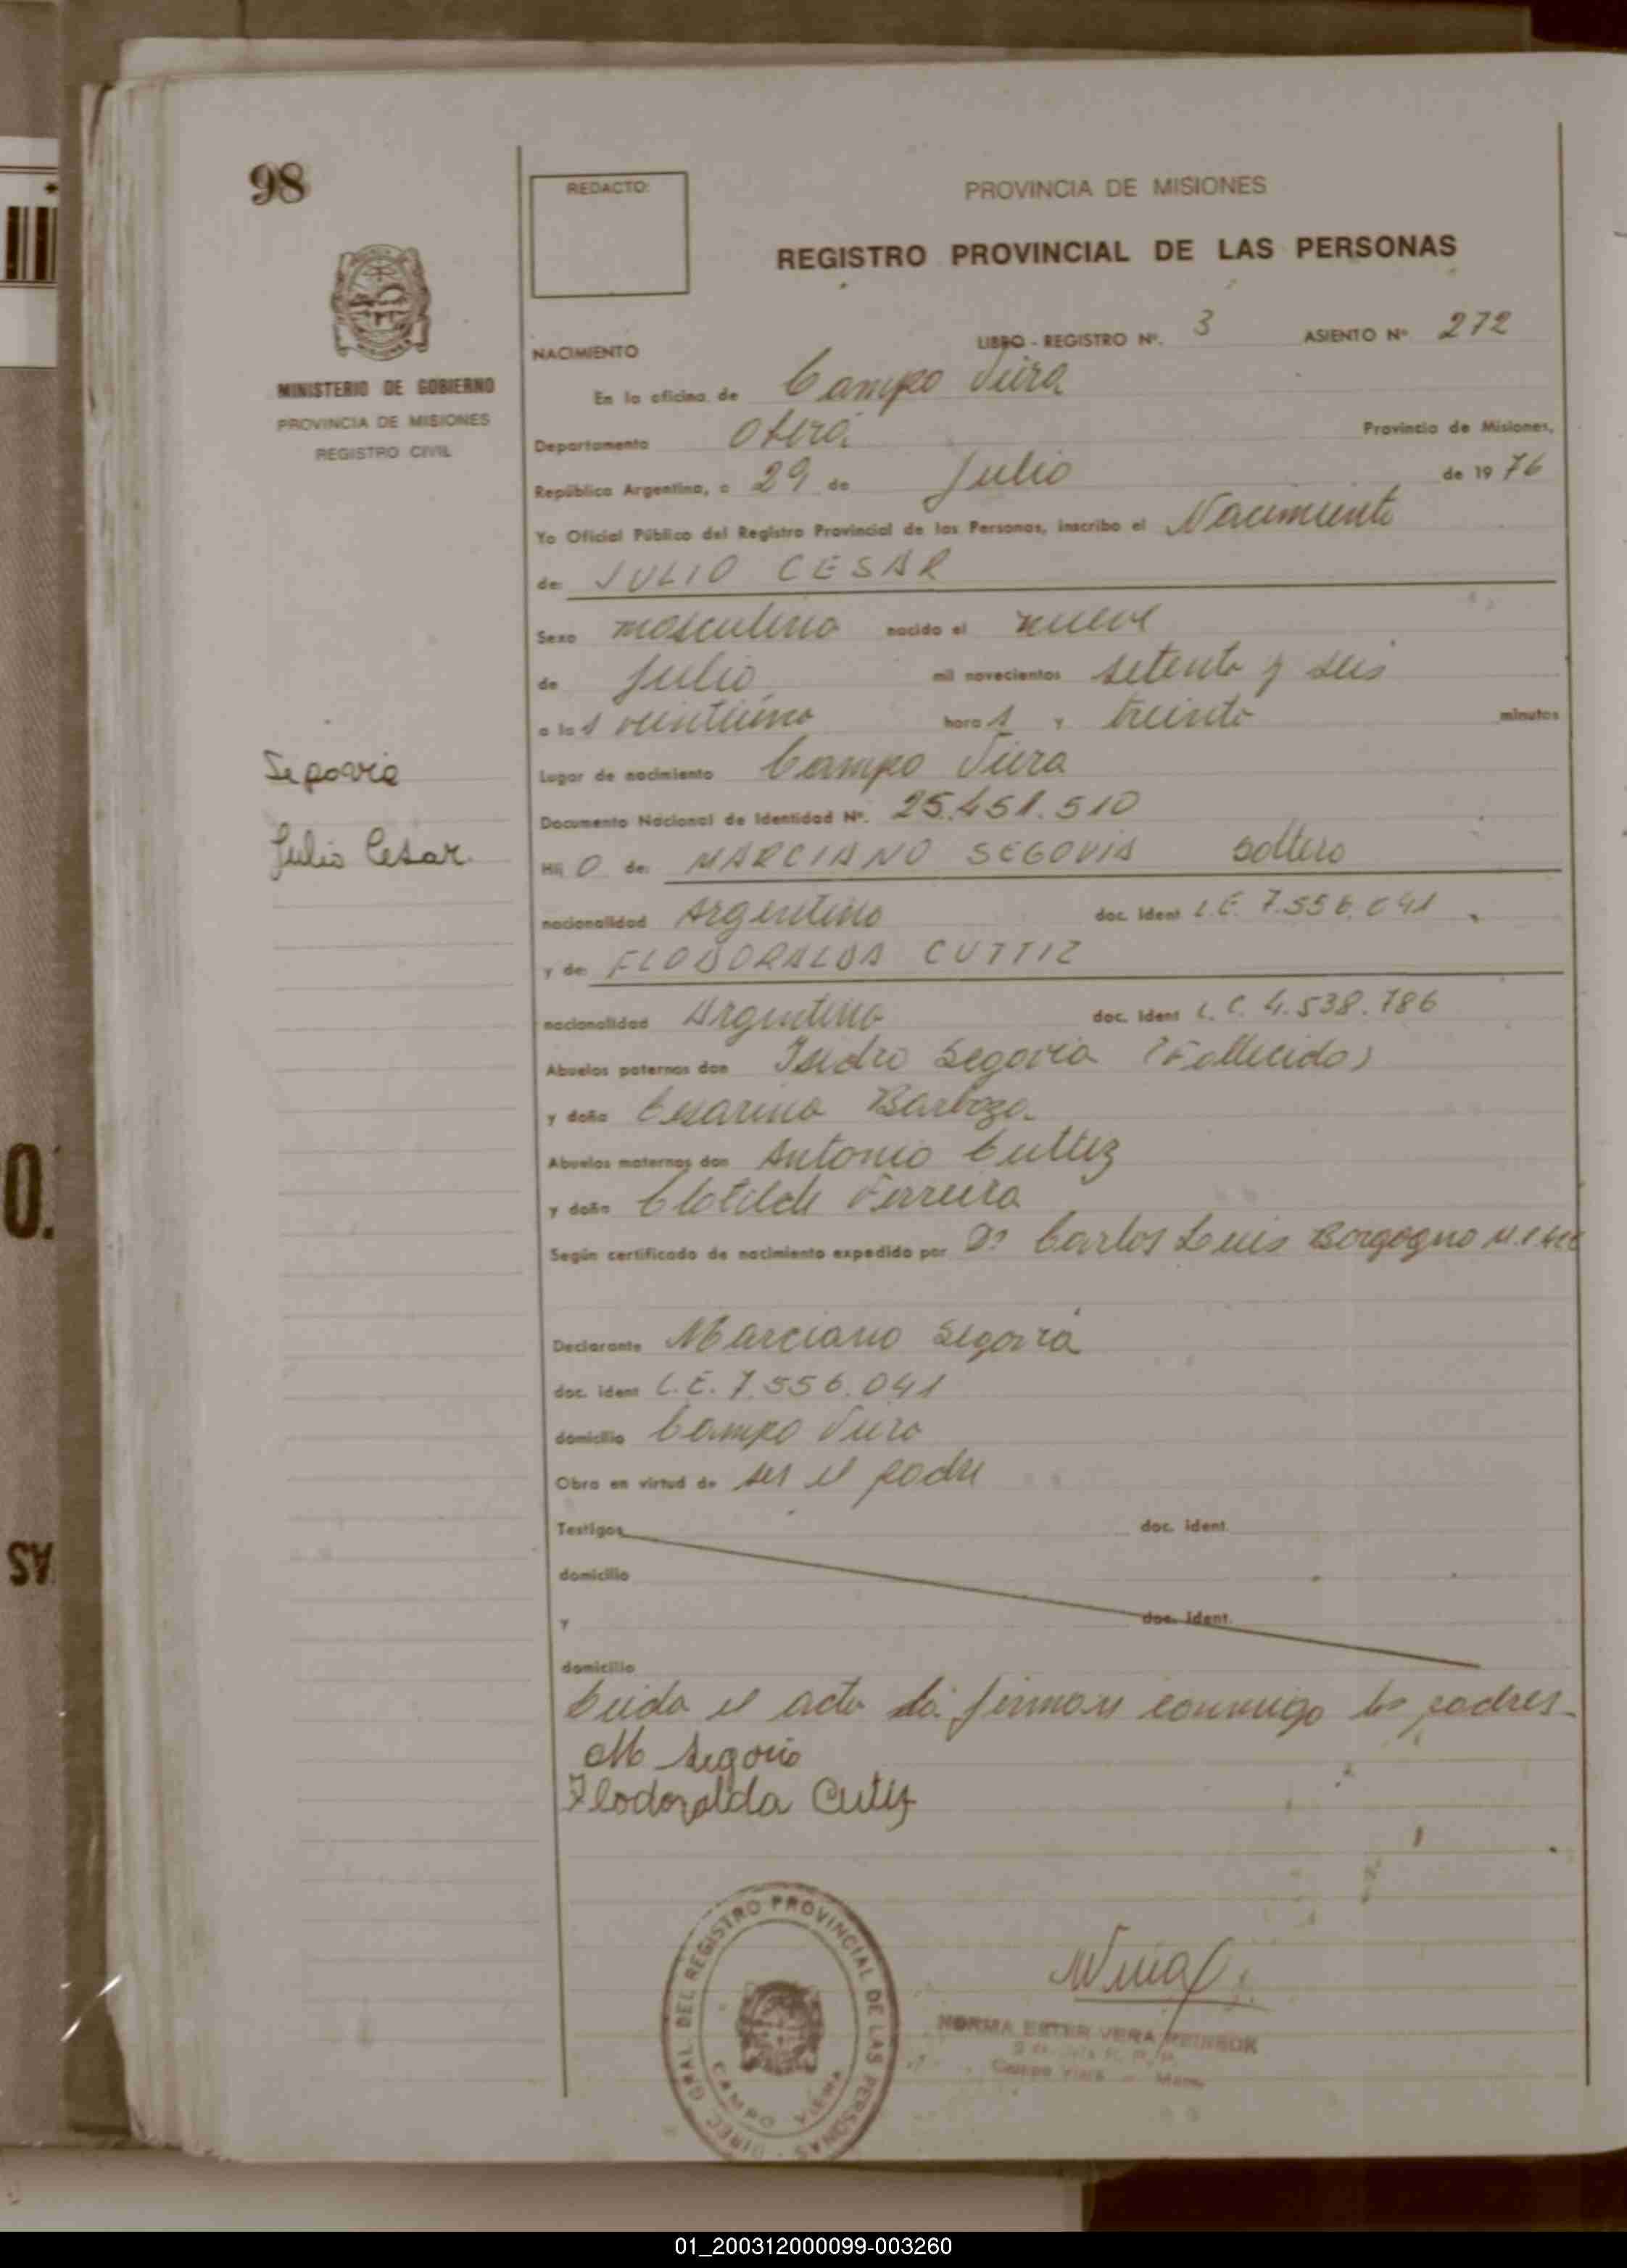 98
REDACTO:
PROVINCIA DE MISIONES
REGISTRO PROVINCIAL DE LAS PERSONAS
MINISTERIO DE GOBIERNO
PROVINCIA DE MISIONES
REGISTRO CIVIL
Segovia
Julio Cesar.
NACIMIENTO
LIBRO - REGISTRO Nº. 3 ASIENTO Nº 272
En la oficina de Campo Viera
Departamento Oberá Provincia de Misiones,
República Argentina, a 29 de Julio de 19 76
Yo Oficial Público del Registro Provincial de las Personas, inscribo el Nacimiento
de: JULIO CESAR
Sexo masculino nacido el nueve
de Julio mil novecientos setenta y seis
a las veintiuna horas y treinta minutos
Lugar de nacimiento Campo Viera
Documento Nacional de Identidad Nº. 25.451.510
Hijo de: MARCIANO SEGOVIA soltero
nacionalidad Argentino doc. ident L.E. 7.556.041
y de: FLODORALDA CUTTIZ
nacionalidad Argentina doc. ident L.C. 4.538.786
Abuelos paternos don Isidro Segovia (Fallecido)
y doña Cesarina Barboza
Abuelos maternos don Antonio Cuttiz
y doña Clotilde Ferreira
Según certificado de nacimiento expedido por Dr Carlos Luis Borgogno
Declarante Marciano Segovia
doc. ident L.E. 7.556.041
domicilio Campo Viera
Obra en virtud de ser el padre
Testigos doc. ident.
domicilio
y doc. ident.
domicilio
Leida el acta la firman conmigo los padres
M Segovia
Flodoralda Cutiz
DIREC. GRAL. DEL REGISTRO PROVINCIAL DE LAS PERSONAS
CAMPO VIERA
NORMA ESTER VERA
Campo Viera
O.
AS
01_200312000099-003260